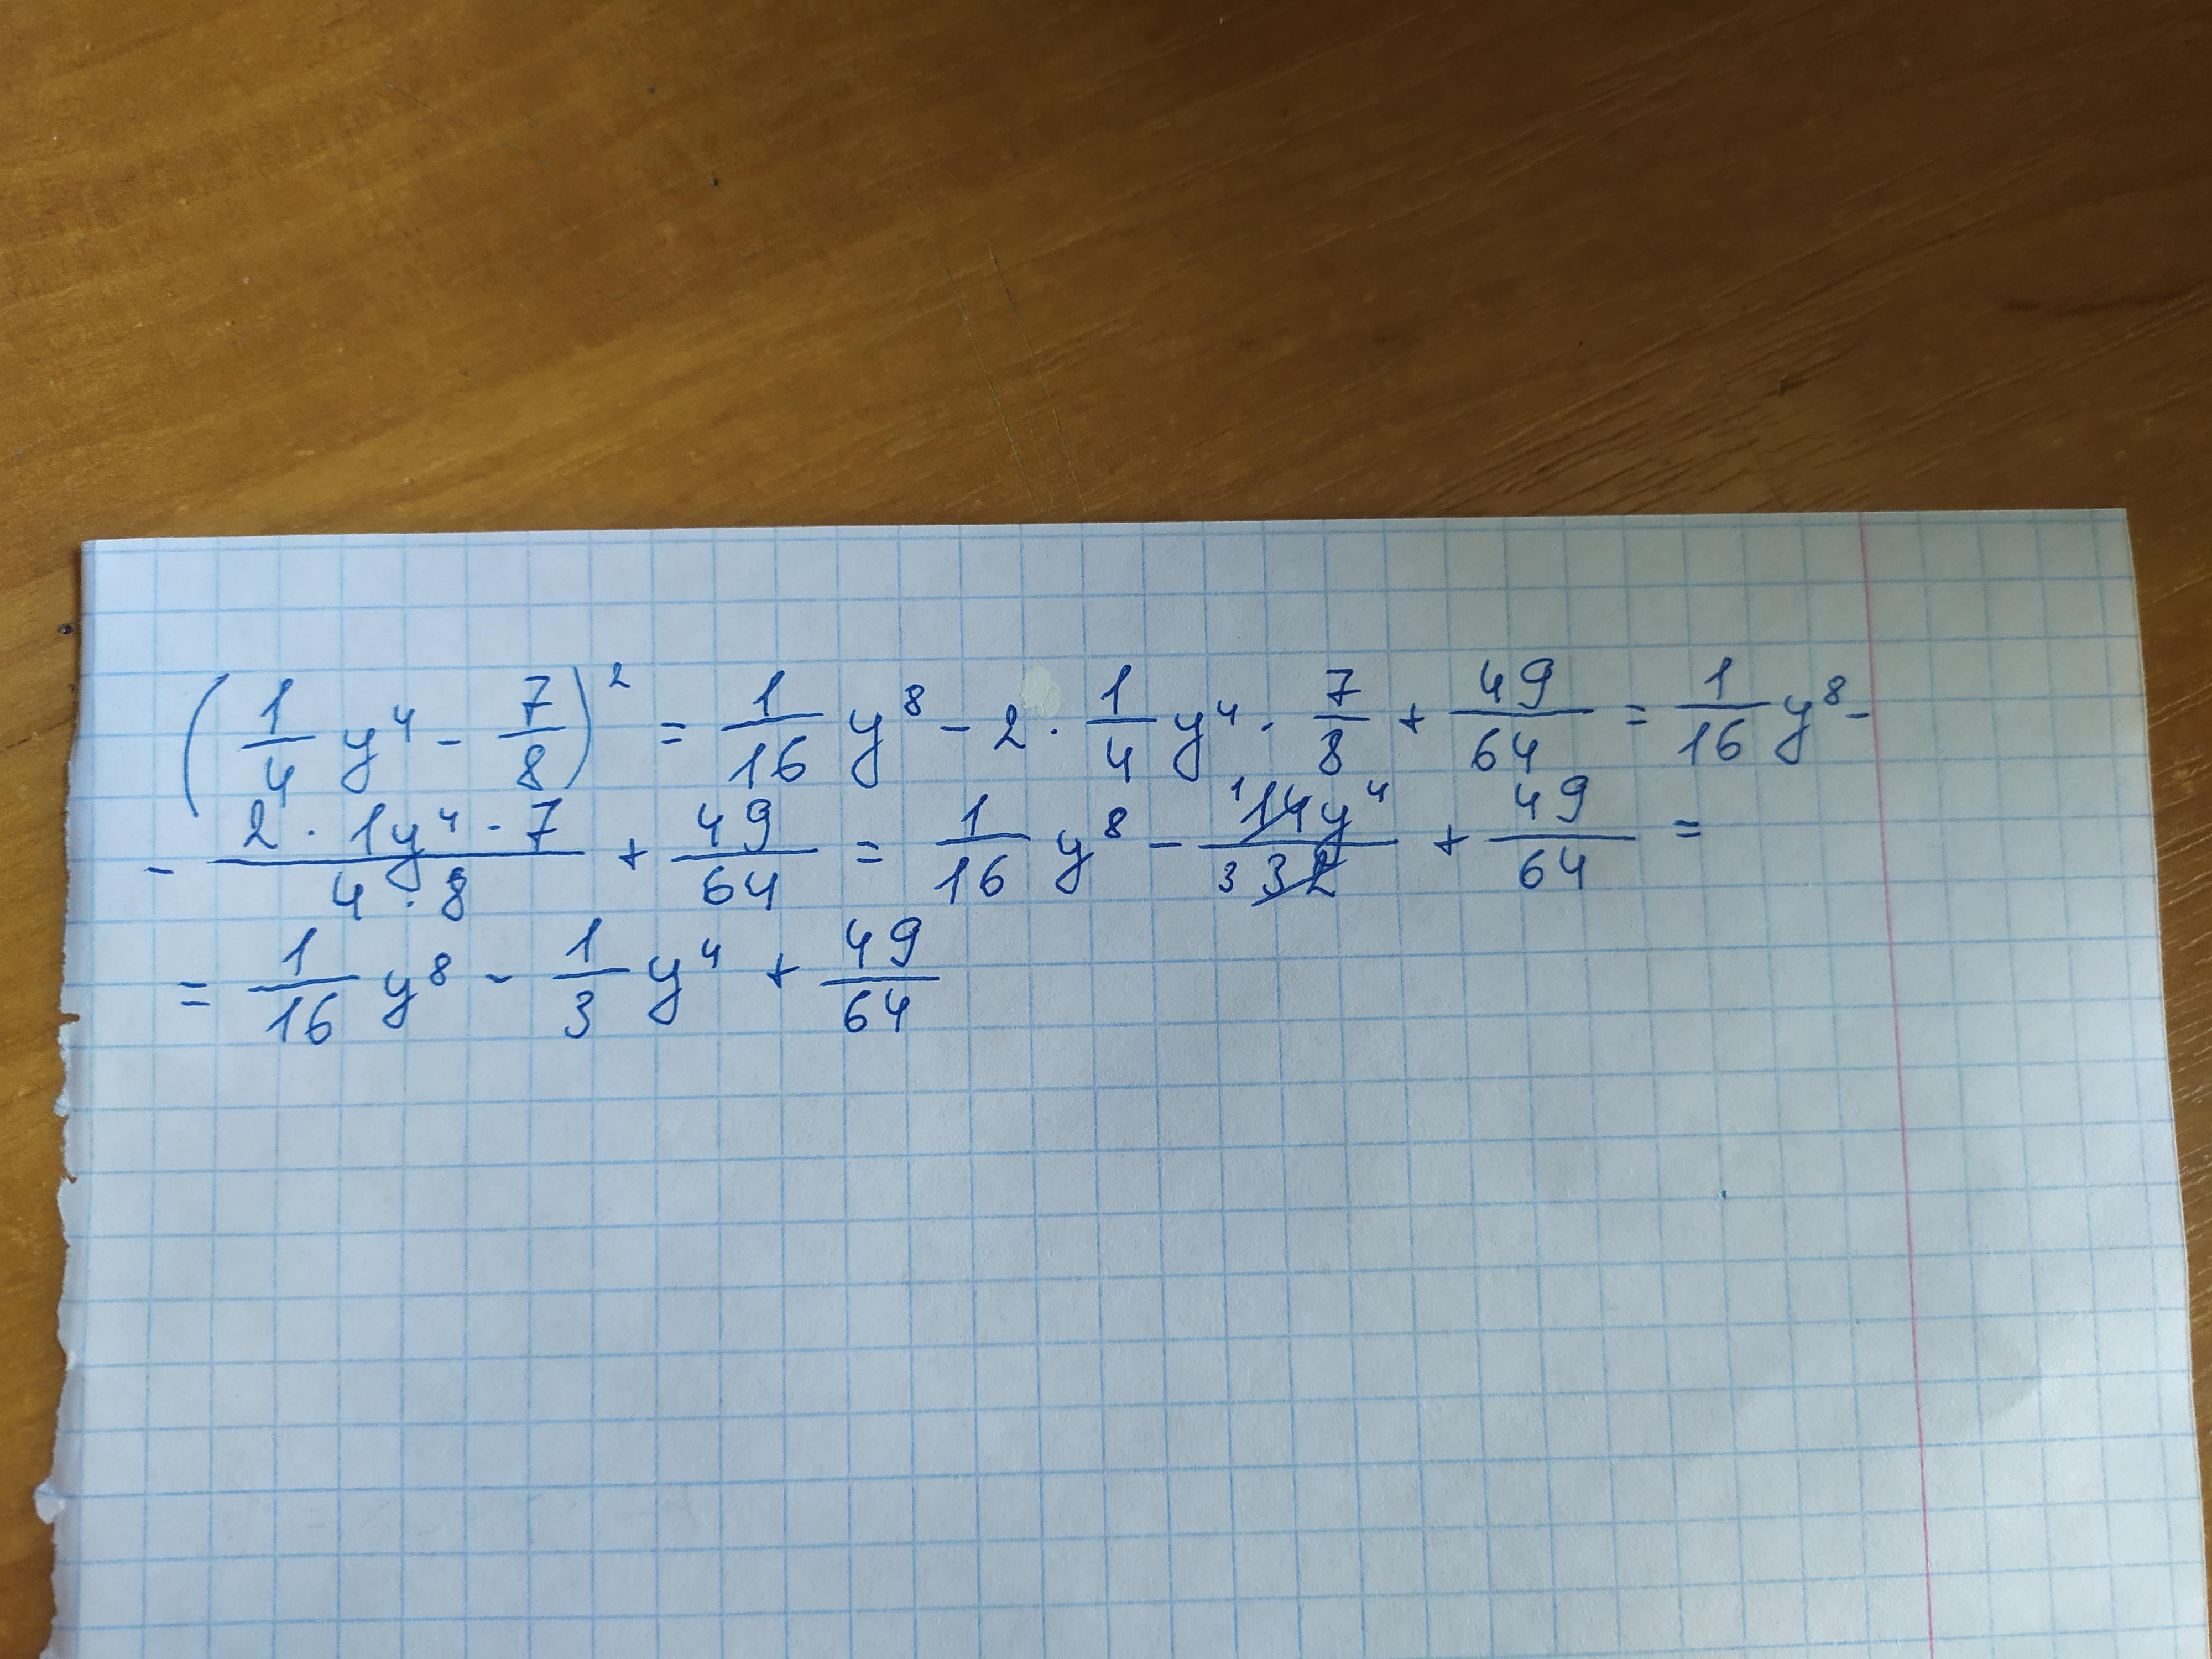 (1/4 y⁴ - 7/8)² = 1/16 y⁸ - 2 · 1/4 y⁴ · 7/8 + 49/64 = 1/16 y⁸ -
- 2 · 1y⁴ · 7 / 4 · 8 + 49/64 = 1/16 y⁸ - ¹14y⁴ / 3 32 + 49/64 =
= 1/16 y⁸ - 1/3 y⁴ + 49/64